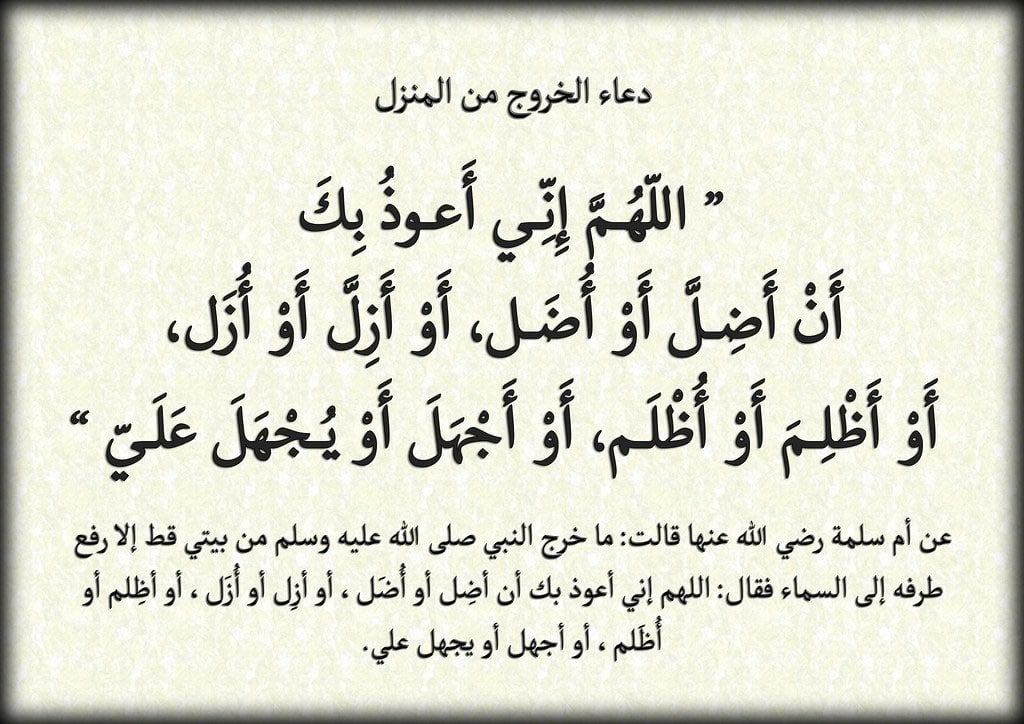 دعاء الخروج من المنزل
” اللّهُـمَّ إِنِّـي أَعـوذُ بِكَ
أَنْ أَضِـلَّ أَوْ أُضَـل، أَوْ أَزِلَّ أَوْ أُزَل،
أَوْ أَظْلِـمَ أَوْ أُظْلَـم، أَوْ أَجْهَلَ أَوْ يُـجْهَلَ عَلَـيّ “
عن أم سلمة رضي الله عنها قالت: ما خرج النبي صلى الله عليه وسلم من بيتي قط إلا رفع
طرفه إلى السماء فقال: اللهم إني أعوذ بك أن أضِل أو أُضَل ، أو أزِل أو أُزَل ، أو أظِلم أو
أُظَلم ، أو أجهل أو يجهل علي.